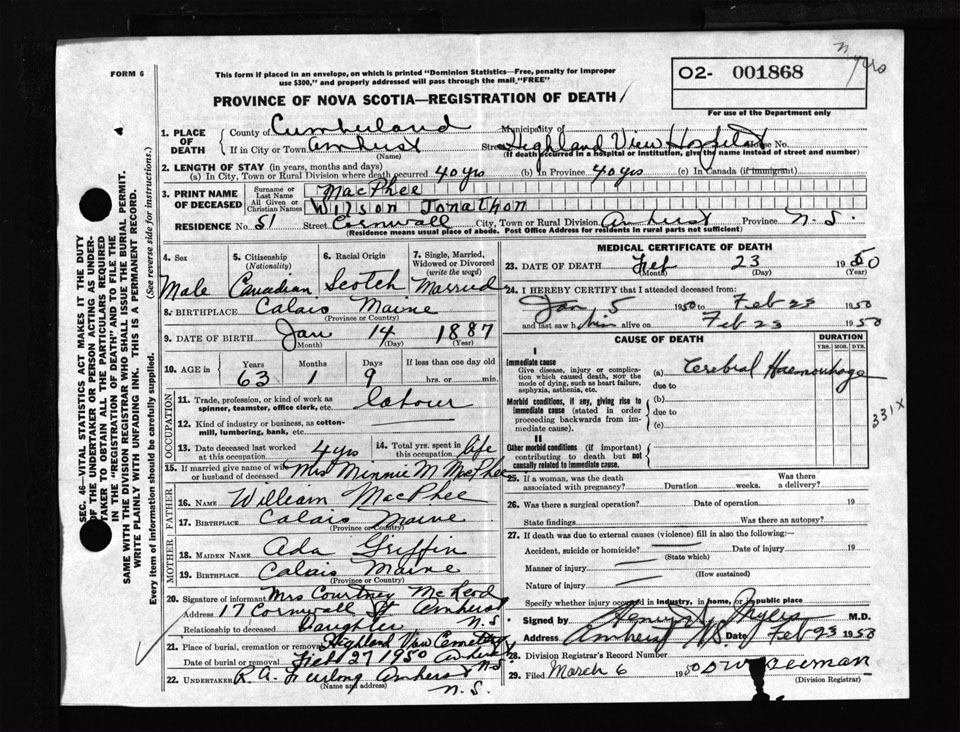 FORM 6
This form if placed in an envelope, on which is printed "Dominion Statistics—Free, penalty for improper
use $300," and properly addressed will pass through the mail "FREE"
O2- 001868
PROVINCE OF NOVA SCOTIA—REGISTRATION OF DEATH
For use of the Department only
1. PLACE OF DEATH
County of Cumberland
Municipality of
If in City or Town Amherst Street Highland View Hospital House No.
(Name)
(If death occurred in a hospital or institution, give the name instead of street and number)
2. LENGTH OF STAY (in years, months and days)
(a) In City, Town or Rural Division where death occurred 40 yrs (b) In Province 40 yrs (c) In Canada (if immigrant)
3. PRINT NAME OF DECEASED
Surname or Last Name MacPhee
All Given or Christian Names Wilson Jonathon
RESIDENCE No. 51 Street Cornwall City, Town or Rural Division Amherst Province N.S.
(Residence means usual place of abode. Post Office Address for residents in rural parts not sufficient)
4. Sex
Male
5. Citizenship
(Nationality)
Canadian
6. Racial Origin
Scotch
7. Single, Married,
Widowed or Divorced
(write the word)
Married
8. BIRTHPLACE Calais Maine
(Province or Country)
9. DATE OF BIRTH Jan 14 1887
(Month) (Day) (Year)
10. AGE in Years Months Days If less than one day old
63 1 9 hrs. or min.
OCCUPATION
11. Trade, profession, or kind of work as
spinner, teamster, office clerk, etc. labour
12. Kind of industry or business, as cotton-
mill, lumbering, bank, etc.
13. Date deceased last worked
at this occupation 4 yrs
14. Total yrs. spent in
this occupation life
15. If married give name of wife
or husband of deceased Mrs Minnie M MacPhee
FATHER
16. NAME William MacPhee
17. BIRTHPLACE Calais Maine
(Province or Country)
MOTHER
18. MAIDEN NAME Ada Griffin
19. BIRTHPLACE Calais Maine
(Province or Country)
20. Signature of informant Mrs Courtney McLeod
Address 17 Cornwall St Amherst
N.S.
Relationship to deceased Daughter
21. Place of burial, cremation or removal Highland View Cemetery
Date of burial or removal Feb 27 1950 Amherst
N.S.
22. UNDERTAKER R.A. Furlong Amherst
(Name and address)
N.S.
MEDICAL CERTIFICATE OF DEATH
23. DATE OF DEATH Feb 23 1950
(Month) (Day) (Year)
24. I HEREBY CERTIFY that I attended deceased from:
Jan 5 1950 to Feb 23 1950
and last saw him alive on Feb 23 1950
CAUSE OF DEATH
DURATION
YRS. MOS. DYS.
I
Immediate cause
Give disease, injury or complica-
tion which caused death, not the
mode of dying, such as heart failure,
asphyxia, asthenia, etc.
(a) Cerebral Haemorrhage
due to
Morbid conditions, if any, giving rise to
immediate cause (stated in order
proceeding backwards from im-
mediate cause).
(b)
due to
(c)
331X
II
Other morbid conditions (if important)
contributing to death but not
causally related to immediate cause.
25. If a woman, was the death
associated with pregnancy? Duration weeks. Was there
a delivery?
26. Was there a surgical operation? Date of operation 19
State findings Was there an autopsy?
27. If death was due to external causes (violence) fill in also the following:—
Accident, suicide or homicide? Date of injury 19
(State which)
Manner of injury
(How sustained)
Nature of injury
Specify whether injury occurred in industry, in home, or in public place
Signed by M.D.
Address Amherst NS Date Feb 23 1950
28. Division Registrar's Record Number
29. Filed March 6 1950
(Division Registrar)
SEC. 46—VITAL STATISTICS ACT MAKES IT THE DUTY
OF THE UNDERTAKER OR PERSON ACTING AS UNDER-
TAKER TO OBTAIN ALL THE PARTICULARS REQUIRED
IN THE "REGISTRATION OF DEATH" AND TO FILE THE
SAME WITH THE DIVISION REGISTRAR WHO SHALL ISSUE THE BURIAL PERMIT.
WRITE PLAINLY WITH UNFADING INK. THIS IS A PERMANENT RECORD.
Every item of information should be carefully supplied. (See reverse side for instructions.)